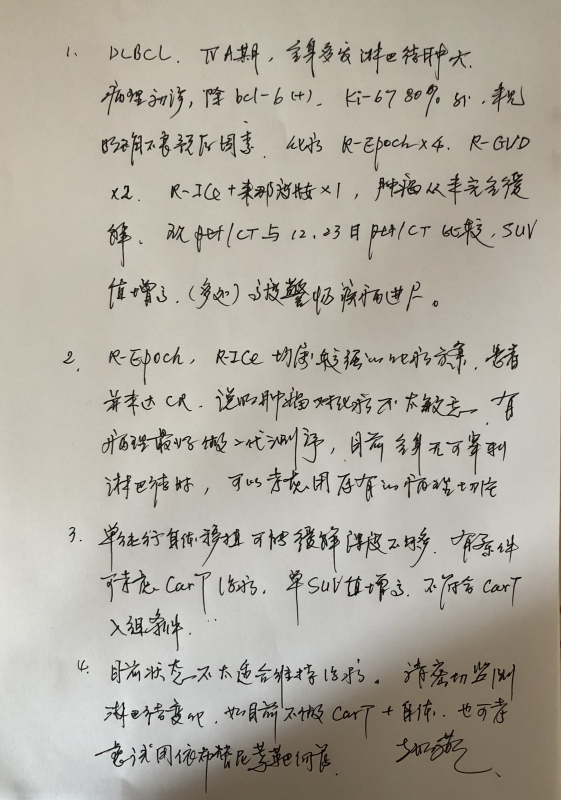 1. DLBCL. IVA期, 全身多发淋巴结肿大.
病理初诊, 除 bcl-6 (+). Ki-67 80% 外. 未见
明确不良预后因素. 化疗 R-Epoch ×4. R-GVD
×2. R-ICe + 来那度胺 ×1, 肿瘤从未完全缓
解. 现 pet/CT 与 12.23日 pet/CT 比较, SUV
值增高. (多处) 高度警惕疾病进展。
2. R-Epoch, R-ICe 均属较强的化疗方案. 患者
并未达 CR. 说明肿瘤对化疗不太敏感. 有
病理最好做二代测序, 目前全身无可穿刺
淋巴结, 可以考虑用原有的病理切片
3. 单纯行自体移植可能缓解深度不够. 有条件
可考虑 CarT 治疗. 单SUV值增高. 不符合 CarT
入组条件.
4. 目前状态不太适合维持治疗。请密切监测
淋巴结变化. 如目前不做 CarT + 自体. 也可考
虑试用依布替尼等靶向药.